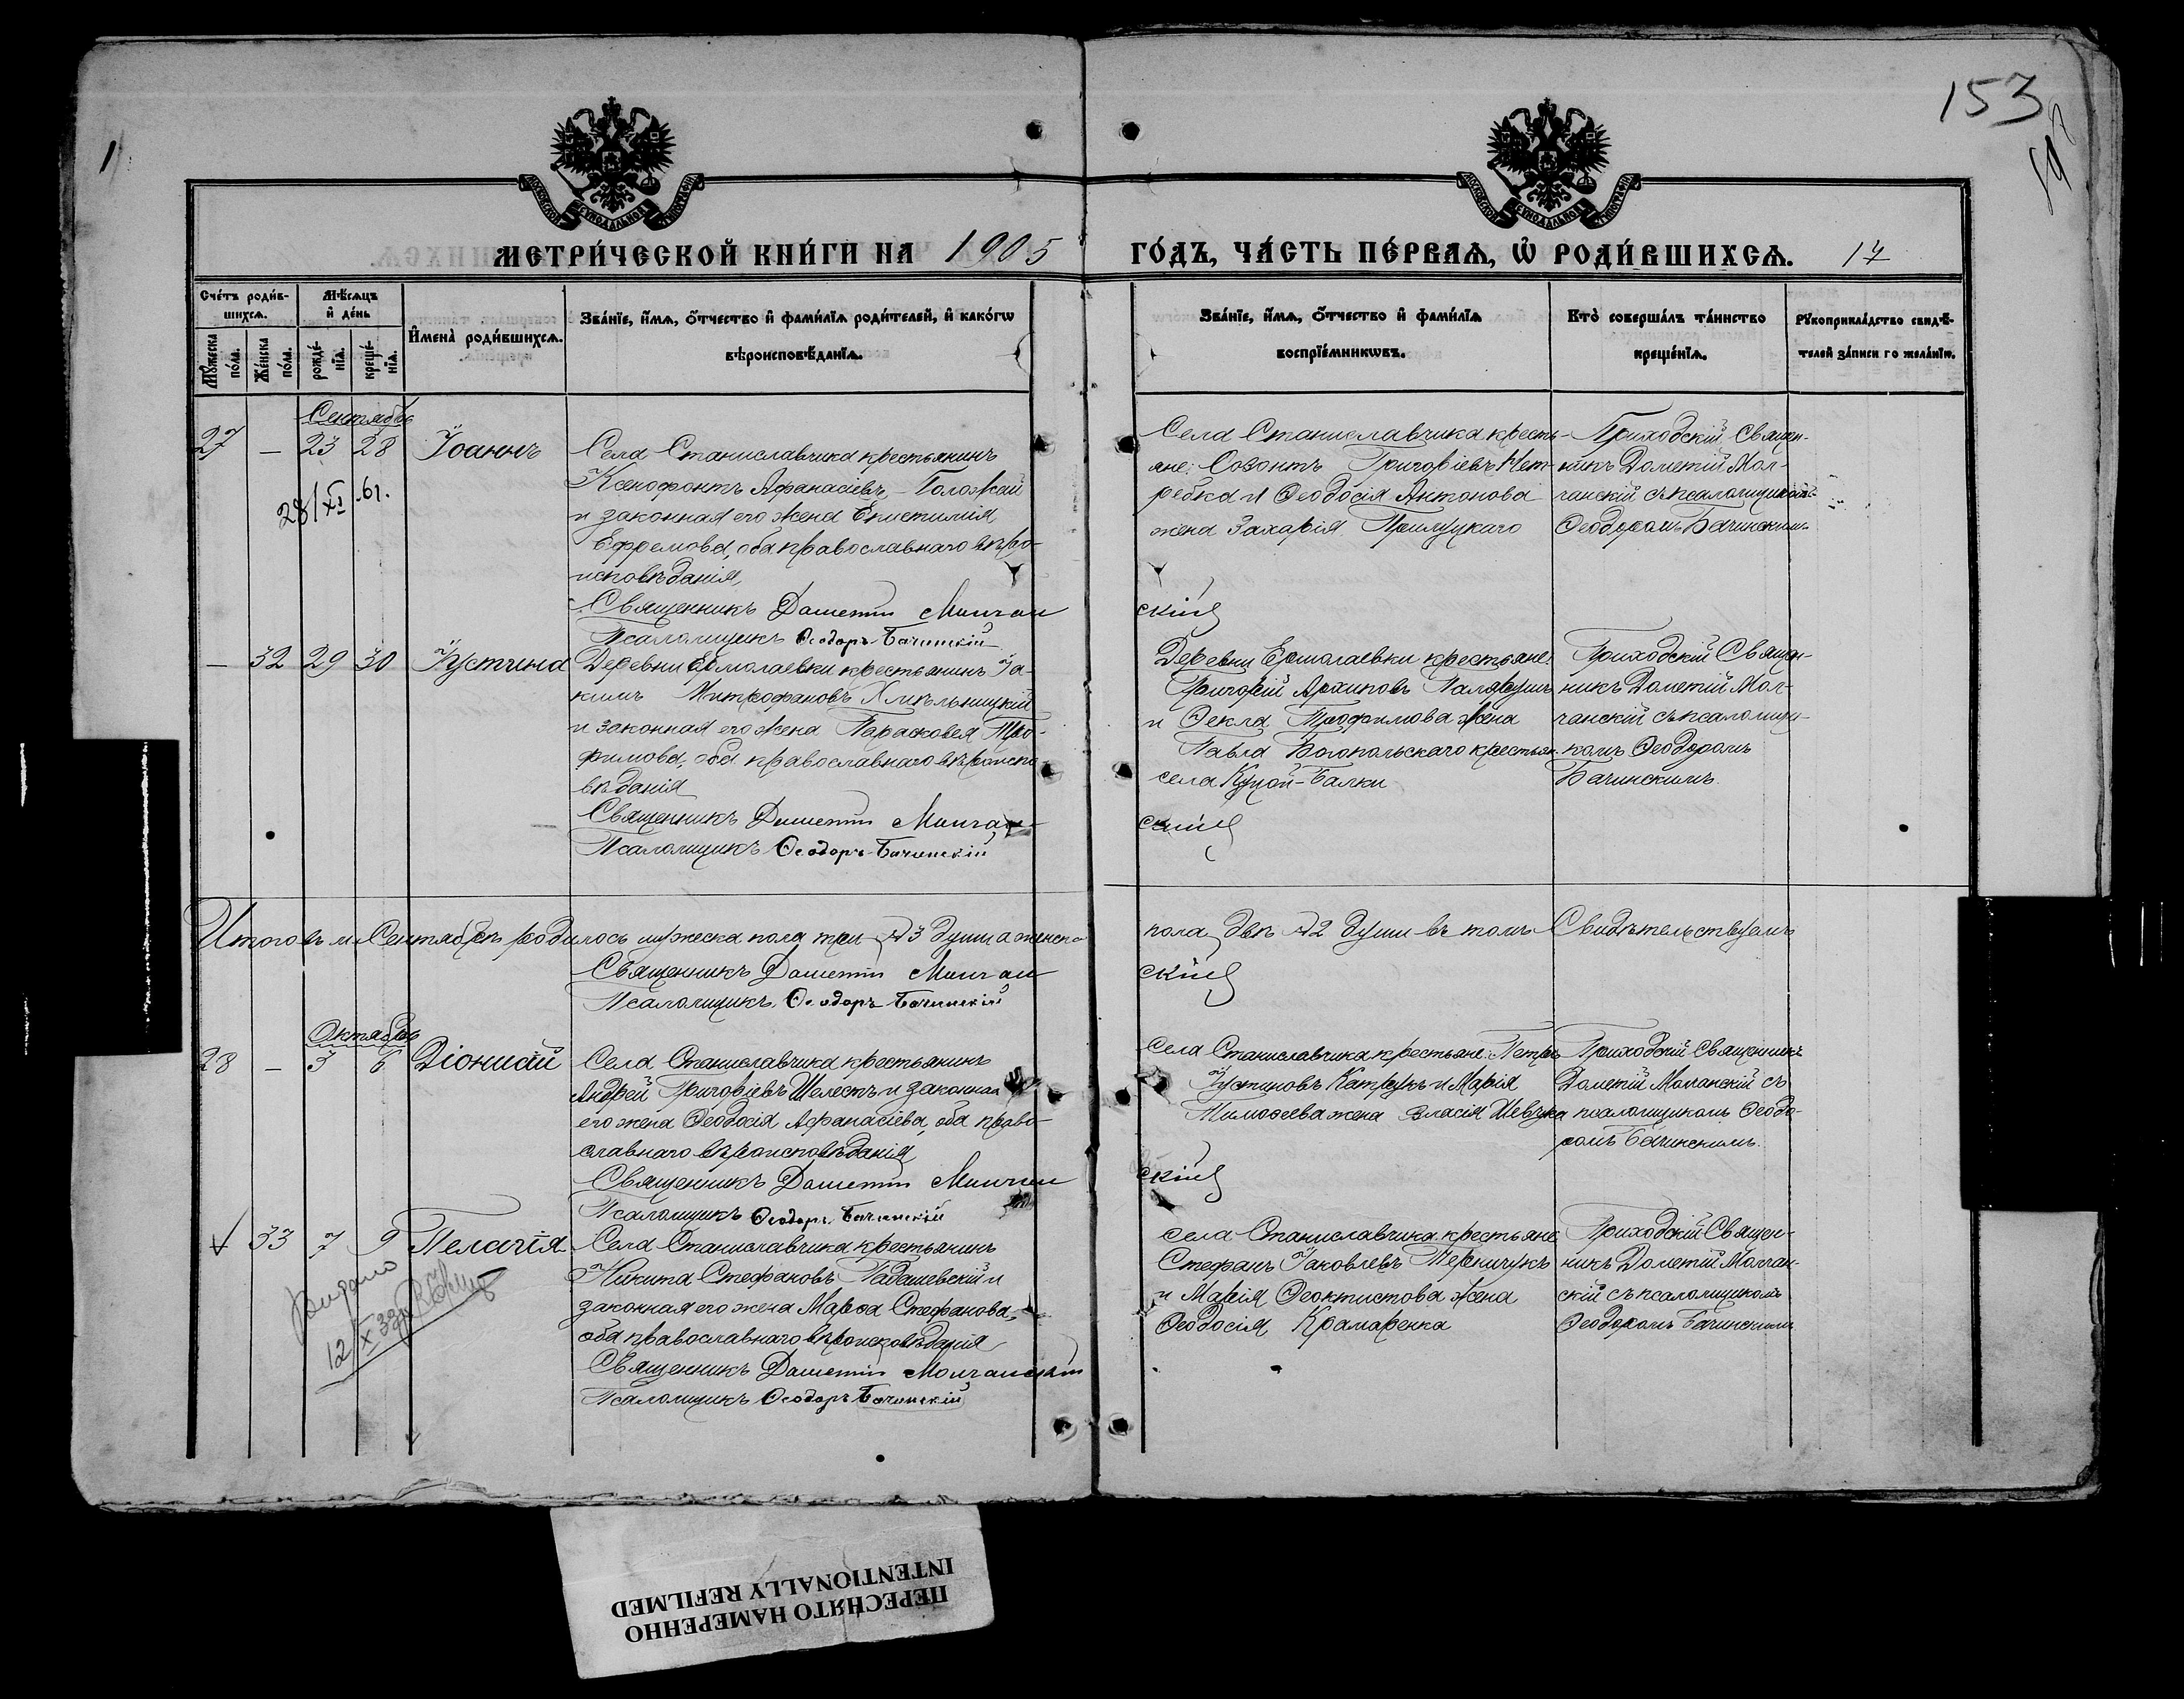 153
1
МОСКОВСКОЙ СУНОДАЛЬНОЙ ТИПОГРАФІИ
МОСКОВСКОЙ СУНОДАЛЬНОЙ ТИПОГРАФІИ
МЕТРИ́ЧЕСКОЙ КНИ́ГИ НА 1905
ГО́ДЪ, ЧА́СТЬ ПЕ́РВАѦ, Ѽ РОДИ́ВШИХСѦ. 17
Сче́тъ роди́в-
шихсѧ.
Мѣ́сѧцъ
и҆ де́нь
Мꙋ́жеска
по́ла.
Же́нска
по́ла.
рожде́-
нїѧ.
креще́-
нїѧ.
И҆мена̀ роди́вшихсѧ.
Зва́нїе, и҆́мѧ, ѻ҆́тчество и҆ фами́лїѧ роди́телей, и҆ како́гѡ
вѣроисповѣ́данїѧ.
Зва́нїе, и҆́мѧ, ѻ҆́тчество и҆ фами́лїѧ
воспрїе́мникѡвъ.
Кто̀ соверша́лъ та́инство
креще́нїѧ.
Рꙋкоприкла́дство свидѣ́-
телей за́писи по жела́нїю.
Сентябрь
27 — 23 28 Іоаннъ
Села Станиславчика крестьянинъ
Ксенофонтъ Аѳанасіевъ Положай
и законная его жена Епистимія
Ефремова, оба православнаго вѣро-
исповѣданія,
Священникъ Дометій Молчан
Псаломщикъ Ѳеодоръ Бачинскій
28/XI 61.
Села Станиславчика кресть-
яне: Созонтъ Григоріевъ Нет-
ребка и Ѳеодосія Антонова
жена Захарія Прилуцкаго
скій
Приходскій Священ-
никъ Дометій Мол-
чанскій съ псаломщикомъ
Ѳеодоромъ Бачинскимъ
— 32 29 30 Іустина
Деревни Ермолаевки крестьянинъ Іа-
кимъ Митрофановъ Хмѣльницкій
и законная его жена Парасковея Тро-
фимова, оба православнаго вѣроиспо-
вѣданія
Священникъ Дометій Молчан
Псаломщикъ Ѳеодоръ Бачинскій
Деревни Ермолаевки крестьяне:
Григорій Архиповъ
и Ѳекла Трофимова жена
Павла Богопольскаго крестьян.
села Куцой-Балки
скій
Приходскій Священ-
никъ Дометій Мол-
чанскій съ псаломщи-
комъ Ѳеодоромъ
Бачинскимъ.
Итого въ м. Сентябрѣ родилось мужеска пола три 3 души а женска
пола двѣ 2 души въ томъ Свидѣтельствуемъ
Священникъ Дометій Молчан
скій
Псаломщикъ Ѳеодоръ Бачинскій
Октябрь
28 — 3 6 Діонисій
Села Станиславчика крестьянинъ
Андрей Григоріевъ Шелестъ и законная
его жена Ѳеодосія Аѳанасіева, оба право-
славнаго вѣроисповѣданія
Священникъ Дометій Молчан
Псаломщикъ Ѳеодоръ Бачинскій
Села Станиславчика крестьяне: Петръ
Іустиновъ Катрукъ и Марія
Тимоѳеева жена Власія Шевчука
скій
Приходскій Священникъ
Дометій Молчанскій съ
псаломщикомъ Ѳеодо-
ромъ Бачинскимъ.
33 7 9 Пелагія
Села Станиславчика крестьянинъ
Никита Стефановъ Подашевскій и
законная его жена Марѳа Стефанова,
оба православнаго вѣроисповѣданія
Священникъ Дометій Молчанскій
Псаломщикъ Ѳеодоръ Бачинскій
Видано
12/X 33р
села Станиславчика крестьяне
Стефанъ Іаковлевъ
и Марія Ѳеоктистова жена
Ѳеодосія Крамаренка
Приходскій Священ-
никъ Дометій Молчан-
скій съ псаломщикомъ
Ѳеодоромъ Бачинскимъ
ПЕРЕСНЯТО НАМЕРЕННО
INTENTIONALLY REFILMED